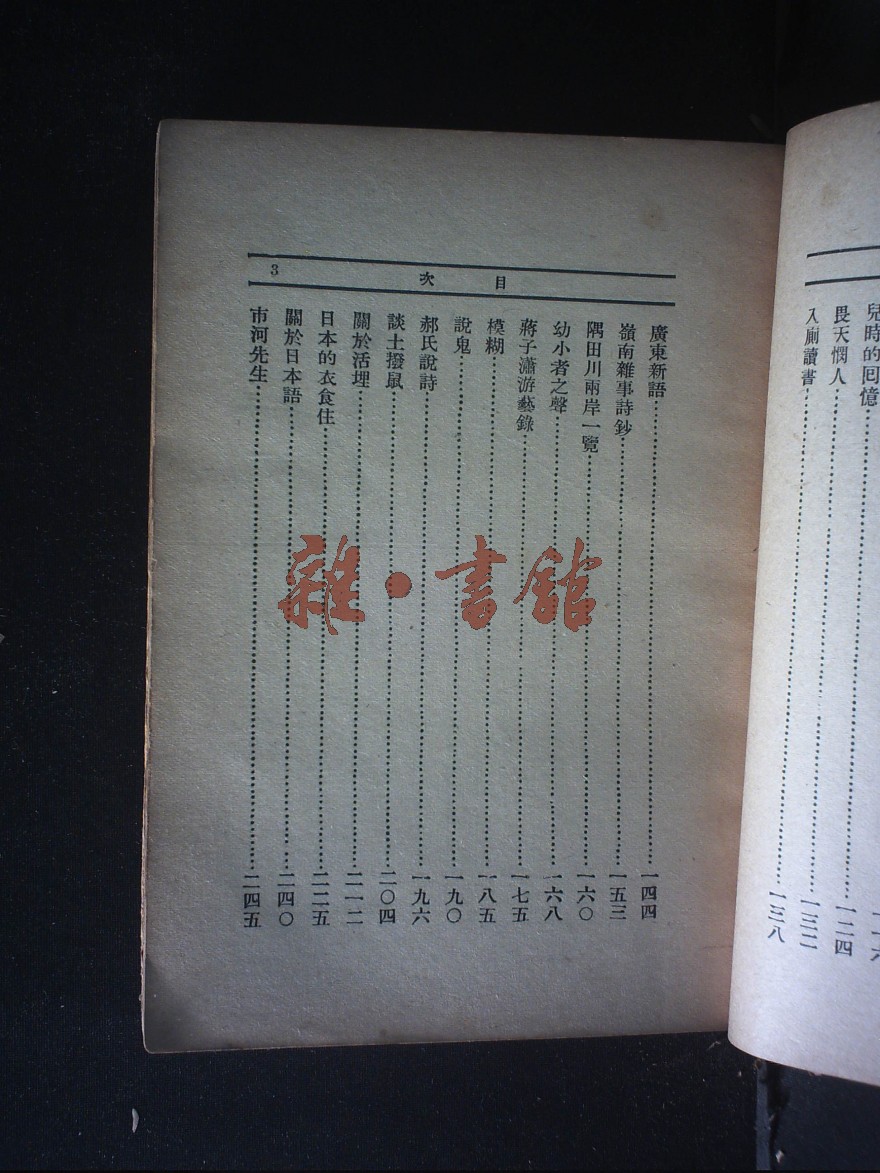 兒時的回憶……一二四
畏天憫人……一三二
入厠讀書……一三八
目次
3
廣東新語……一四四
嶺南雜事詩鈔……一五三
隅田川兩岸一覽……一六〇
幼小者之聲……一六八
蔣子瀟游藝錄……一七五
模糊……一八五
說鬼……一九〇
郝氏說詩……一九六
談土撥鼠……二〇四
關於活埋……二一二
日本的衣食住……二二五
關於日本語……二四〇
市河先生……二四五
雜·書館